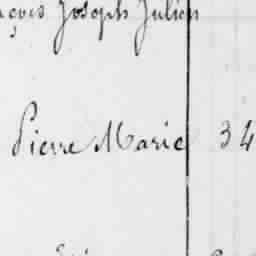 çois Joseph Julien
Pierre Marie 34